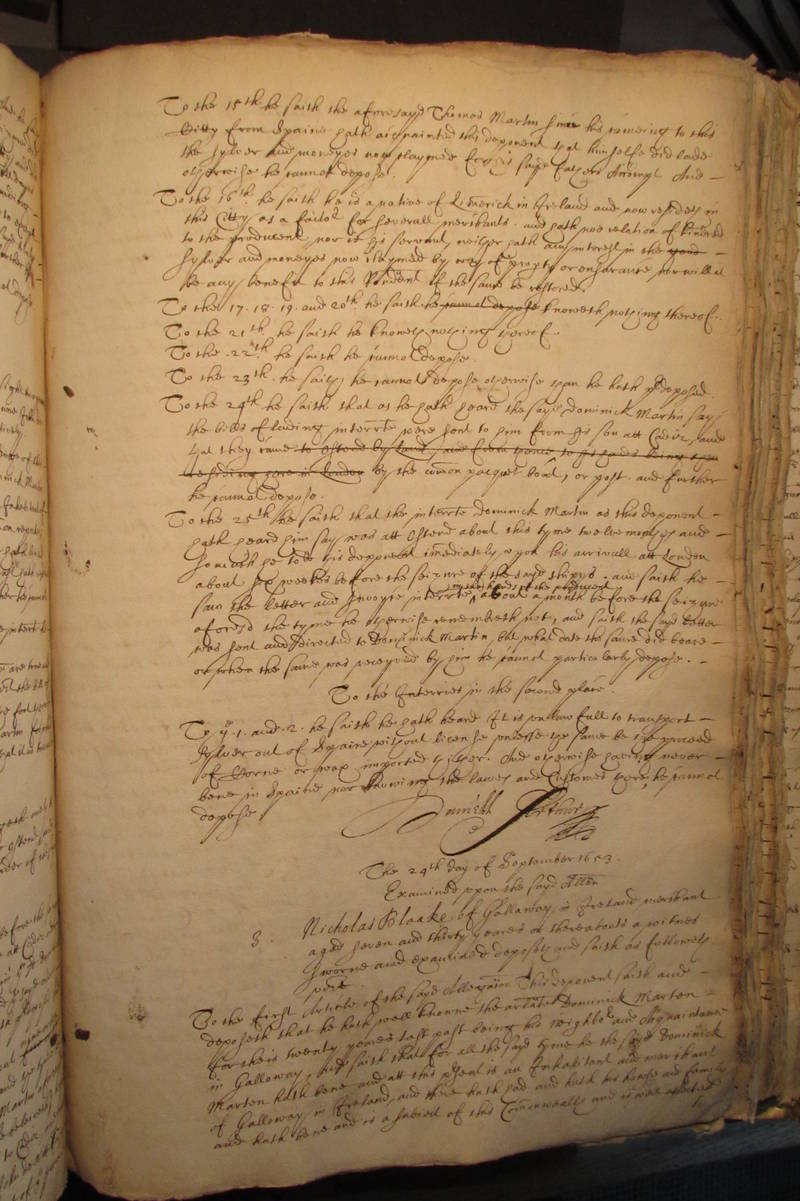 To the 15th. he saith the aforesayd Thomas Martin since his comeing to this
Citty from Spaine hath acquainted this deponent that himselfe did lade
the sylver and moneyes now claymed And
otherwise he cannot depose.
To the 16th he saith he is a native of Limerick in Ireland and now resideth in
this Citty as a factor for severall merchants. and hath noe relation of kindred
to the producent nor is his servant, neither hath any interest in the
sylver and moneyes now claymed by way of proxy or ensurance nor will it
be any benefit to this Rendent if the same be restored.
To the 17. 18. 19. and 20th. he saith he cannot depose knoweth nothing thereof.
To the 21th. he saith he knoweth nothing thereof.
To the .22th. he saith he cannot depose
To the 23th. he saith he cannot depose otherwise than he hath predeposed.
To the 24th. he saith that as he hath heard the sayd Dominick Martin say
the bills of lading interrate were sent to him from his son att Cadiz, and
that they came to Ostend by land, and from thence to his
residing here in London by the common pacquet boat, or post. and further
he cannot depose.
To the 25th he saith that the interrate Dominick Martin as this deponent
hath heard him say was att Ostend about this tyme twelve moneths and
so much he told this deponent immediately upon his arrivall att London
about six weekes before the seizure of the sayd shipps. and saith he
saw the letter and Invoyce interrate in the hands of the producent about a month before the seizure
aforesd the tyme he otherwise remembreth not, and saith the sayd letter
was sent and directed to Dominick Martin, but what date the same did beare
or when the same was receyved by him he cannot particularly depose.
To the Interries in the second place.
To ye .1. and .2. he saith he hath heard It is unlawfull to transport
sylver out of Spaine without license unlesse the same be the proceed
of Corne or wax imported thither. And otherwise haveing never
bene in Spaine nor knowing the lawes and Customes there, he cannot
depose
Daniell
The 24th day of September 1653.
Examined upon the sayd Allon
3. Nicholas Blaake of Gallaway in Ireland merchant
aged seven and thirty yeares or thereabouts a witnes
sworne and examined deposeth and saith as followeth
vizt
To the first Article of the sayd Allegation This deponent saith and
deposeth that he hath well knowne the arlate Dominick Marten
for theis twenty yeares last past being his neighbor and Acquaintance
in Galloway, and saith that for all the sayd tyme he the sayd Dominick
Marten hath bene and att this present is an Inhabitant and merchant
of Galloway in Ireland, and there hath had and hath his house and family
and hath bene and is a subiect of this Commonwealth and is well affected